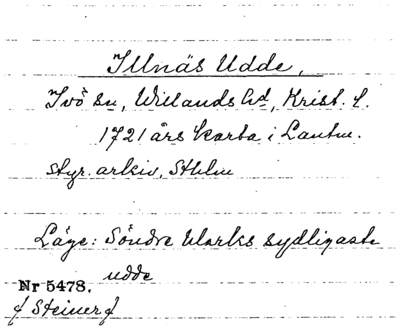 Illnäs Udde,
Ivö sn, Willands hd, Krist. l.
1721 års karta i Lantm.
styr. arkiv, Sthlm
Läge: Söndre klacks sydligaste
udde
Nr 5478.
f Steiner f